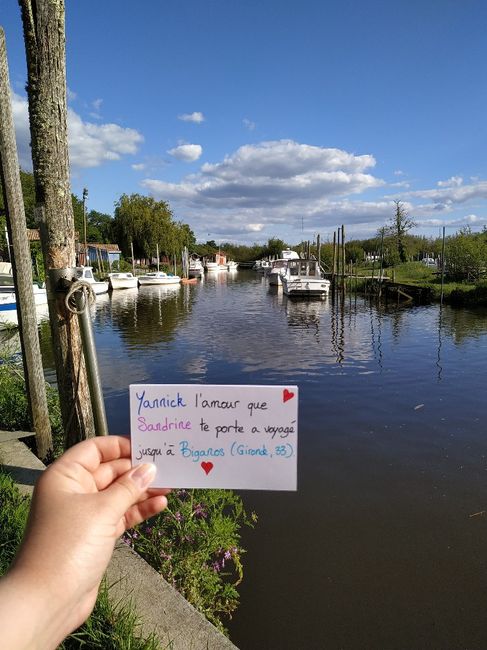 Yannick l'amour que
Sandrine te porte a voyagé
jusqu'à Biganos (Gironde, 33).